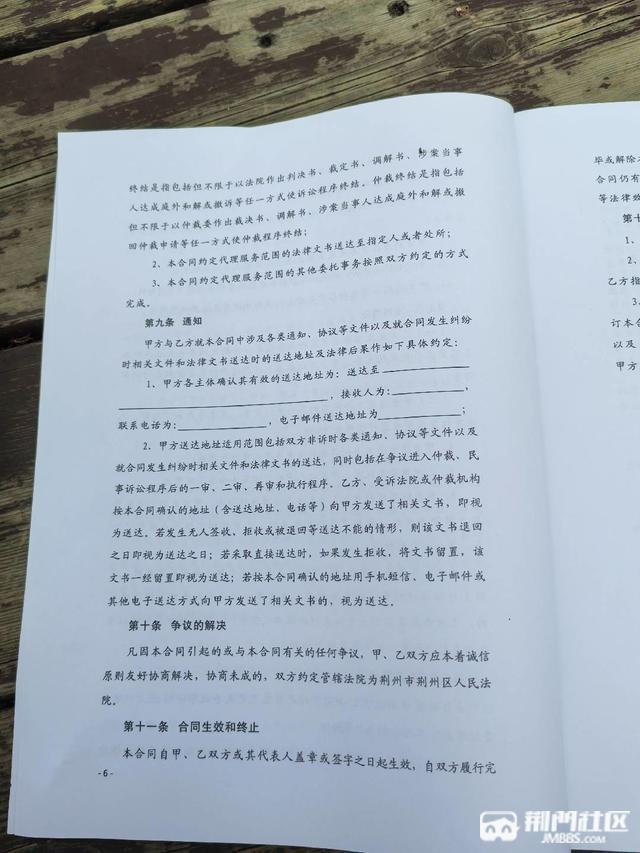 终结是指包括但不限于以法院作出判决书、裁定书、调解书、涉案当事
人达成庭外和解或撤诉等任一方式使诉讼程序终结。仲裁终结是指包括
但不限于以仲裁委作出裁决书、调解书、涉案当事人达成庭外和解或撤
回仲裁申请等任一方式使仲裁程序终结；
2、本合同约定代理服务范围的法律文书送达至指定人或者处所；
3、本合同约定代理服务范围的其他委托事务按照双方约定的方式
完成。
第九条 通知
甲方与乙方就本合同中涉及各类通知、协议等文件以及就合同发生纠纷
时相关文件和法律文书送达时的送达地址及法律后果作如下具体约定：
1、甲方各主体确认其有效的送达地址为：送达至
，接收人为：，
联系电话为：，电子邮件送达地址为；
2、甲方送达地址适用范围包括双方非诉时各类通知、协议等文件以及
就合同发生纠纷时相关文件和法律文书的送达，同时包括在争议进入仲裁、民
事诉讼程序后的一审、二审、再审和执行程序。乙方、受诉法院或仲裁机构
按本合同确认的地址（含送达地址、电话等）向甲方发送了相关文书，即视
为送达。若发生无人签收、拒收或被退回等送达不能的情形，则该文书退回
之日即视为送达之日；若采取直接送达时，如果发生拒收，将文书留置，该
文书一经留置即视为送达；若按本合同确认的地址用手机短信、电子邮件或
其他电子送达方式向甲方发送了相关文书的，视为送达。
第十条 争议的解决
凡因本合同引起的或与本合同有关的任何争议，甲、乙双方应本着诚信
原则友好协商解决，协商未成的，双方约定管辖法院为荆州市荆州区人民法
院。
第十一条 合同生效和终止
本合同自甲、乙双方或其代表人盖章或签字之日起生效，自双方履行完
- 6 -
毕或解除
合同仍有
等法律效
第十
1、
2、
乙方指
3、
订本合
以及
于
荆門社区
JMBBS.COM